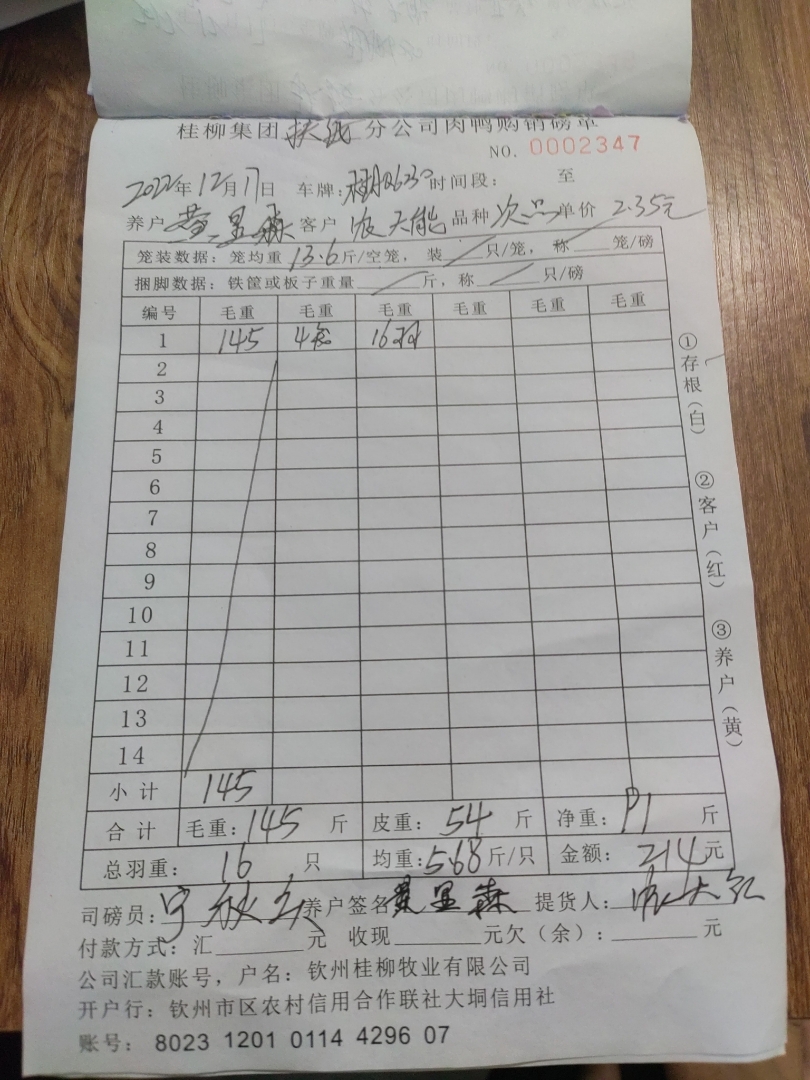 桂柳集团扶绥分公司肉鸭购销磅单
NO. 0002347
2022年12月17日 车牌: 时间段: 至
养户 黄显森 客户 农天能 品种 次品 单价 2.35元
笼装数据: 笼均重 13.6 斤/空笼, 装 / 只/笼, 称 笼/磅
捆脚数据: 铁筐或板子重量 / 斤, 称 / 只/磅
编号 毛重 毛重 毛重 毛重 毛重 毛重
1 145 4仓 16羽
2
3
4
5
6
7
8
9
10
11
12
13
14
小计 145
合计 毛重: 145 斤 皮重: 54 斤 净重: 91 斤
总羽重: 16 只 均重: 5.68 斤/只 金额: 214元
司磅员: 养户签名 黄显森 提货人:
付款方式: 汇 元 收现 元欠(余): 元
公司汇款账号, 户名: 钦州桂柳牧业有限公司
开户行: 钦州市区农村信用合作联社大垌信用社
账号: 8023 1201 0114 4296 07
①存根(白)
②客户(红)
③养户(黄)